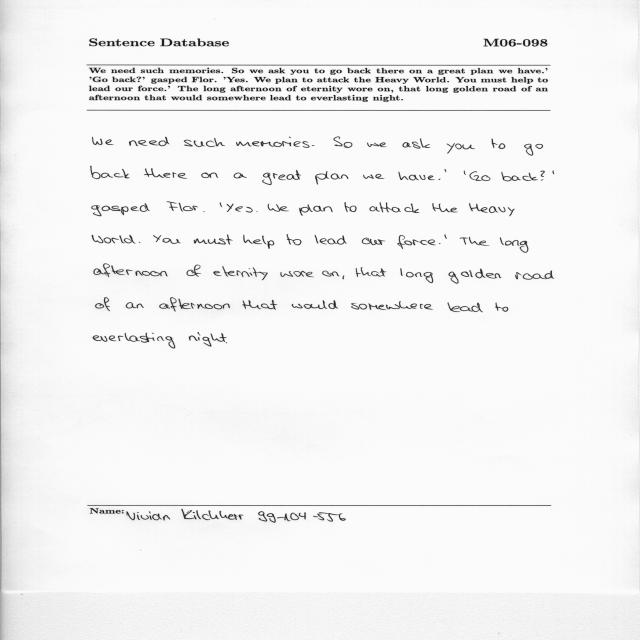 Sentence Database M06-098
We need such memories. So we ask you to go back there on a great plan we have.'
'Go back?' gasped Flor. 'Yes. We plan to attack the Heavy World. You must help to
lead our force.' The long afternoon of eternity wore on, that long golden road of an
afternoon that would somewhere lead to everlasting night.
We need such memories. So we ask you to go
back there on a great plan we have.' 'Go back?'
gasped Flor. 'Yes. We plan to attack the Heavy
World. You must help to lead our force.' The long
afternoon of eternity wore on, that long golden road
of an afternoon that would somewhere lead to
everlasting night.
Name: Vivian Kilchherr 99-104-556